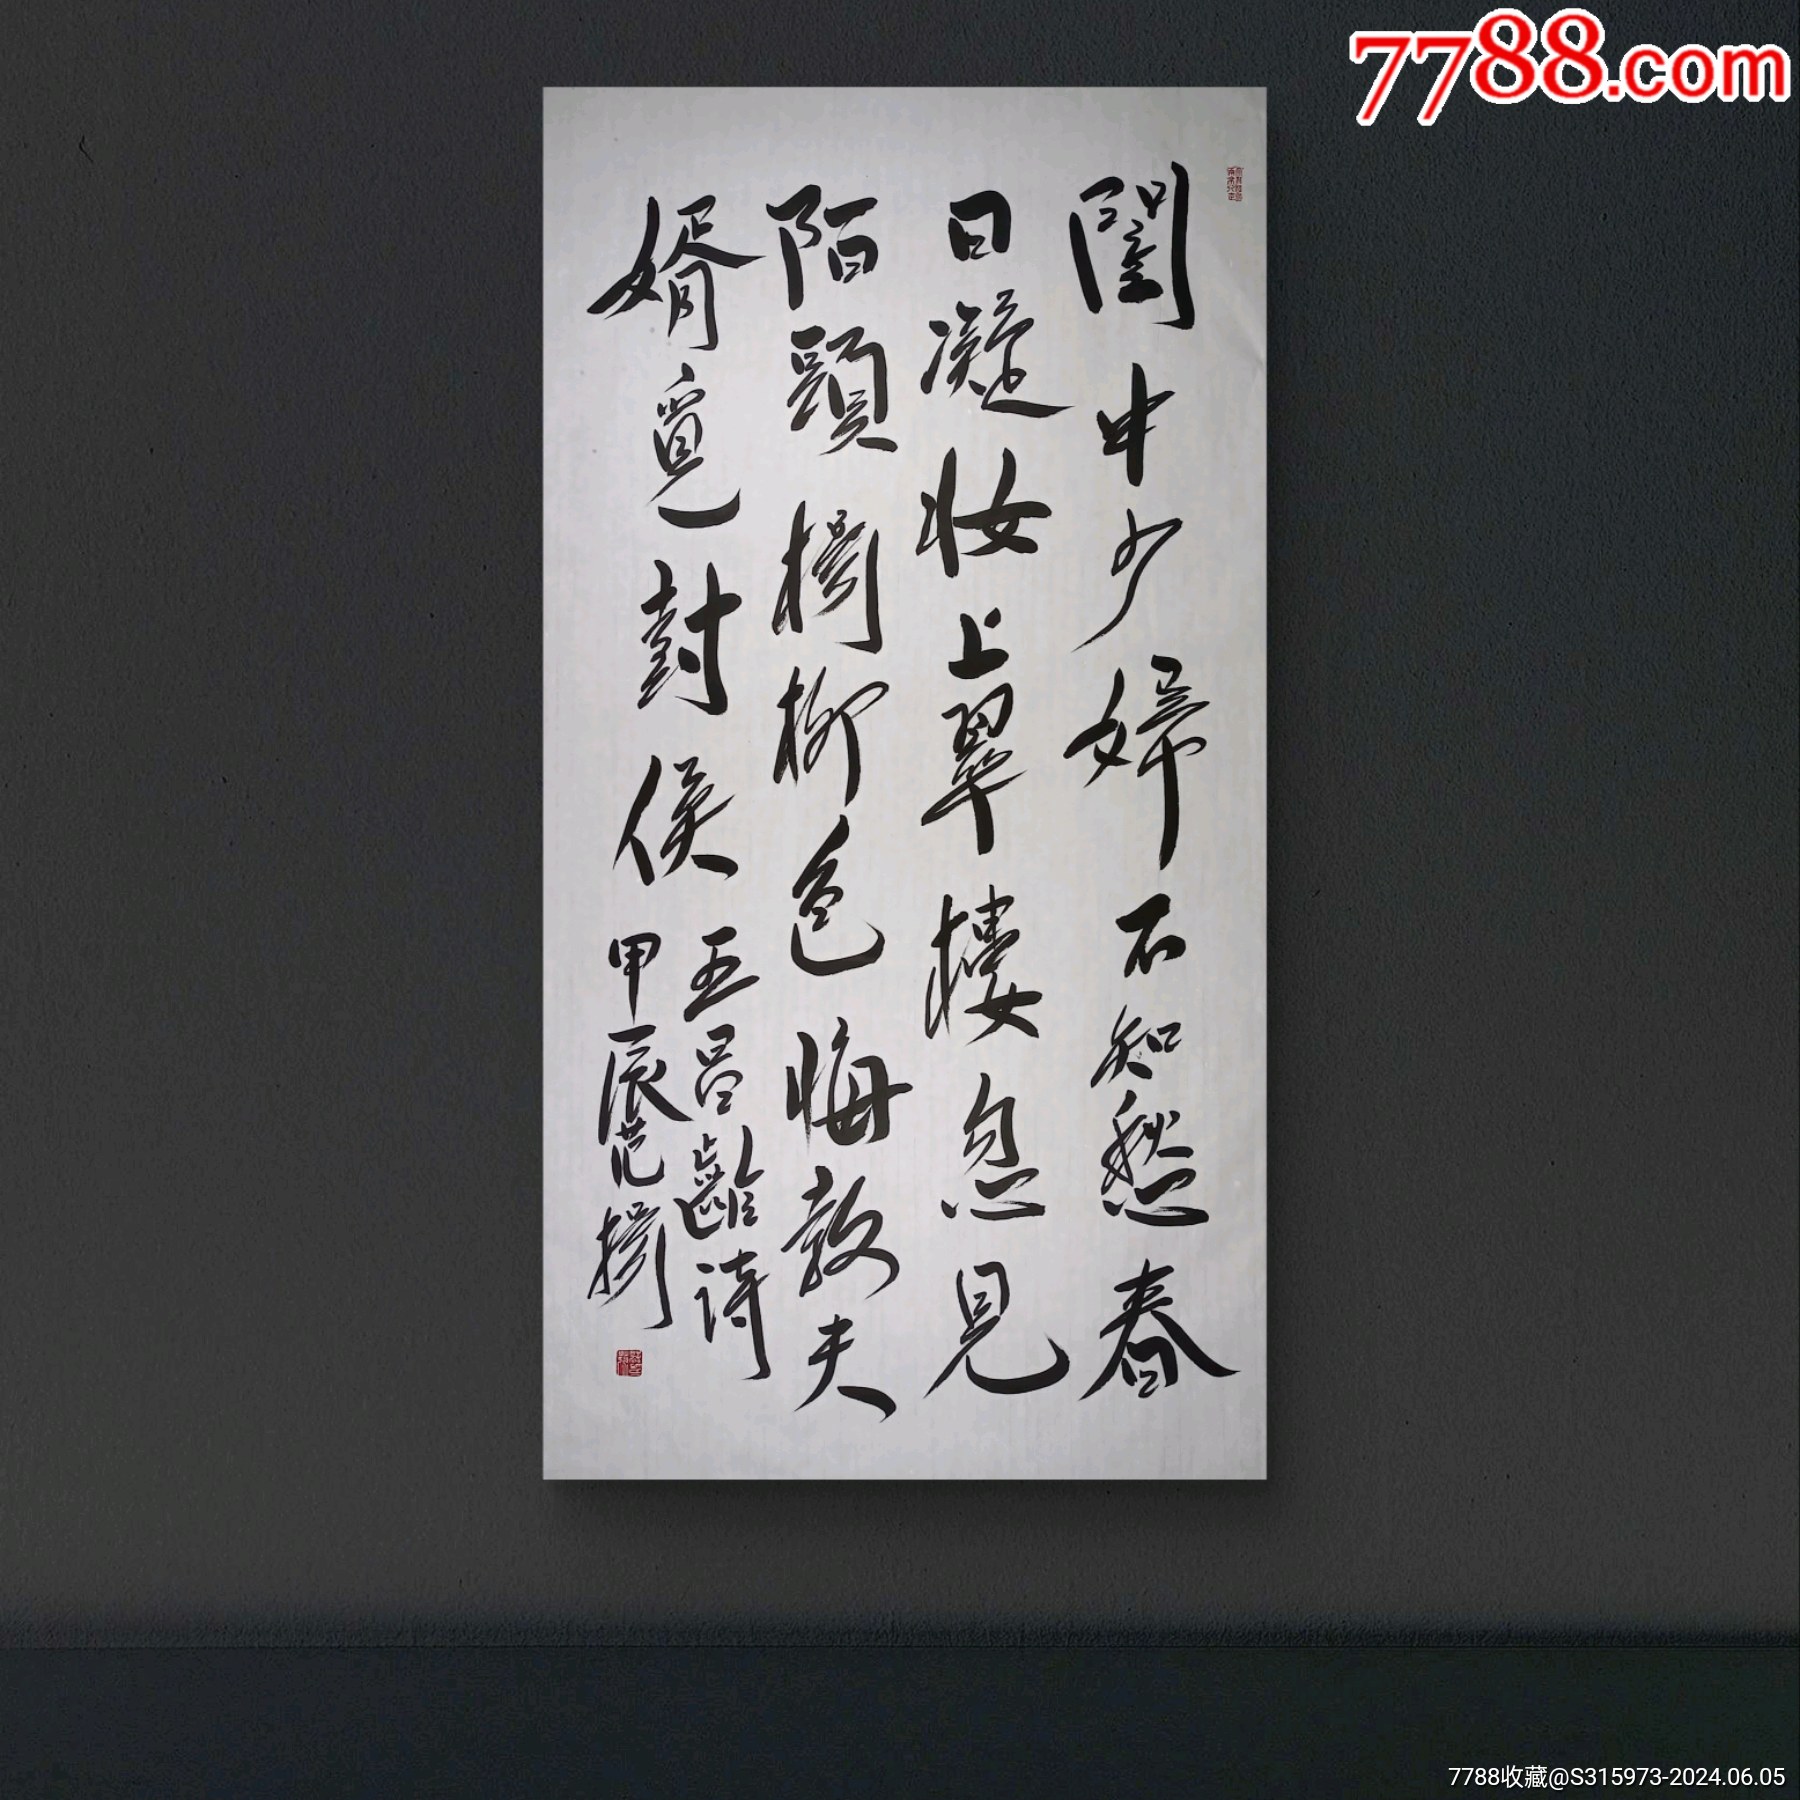 7788.com
閨中少婦不知愁春
日凝妆上翠樓忽見
陌頭楊柳色悔教夫
婿覓封侯
王昌齡詩
甲辰范楊
7788收藏@S315973-2024.06.05